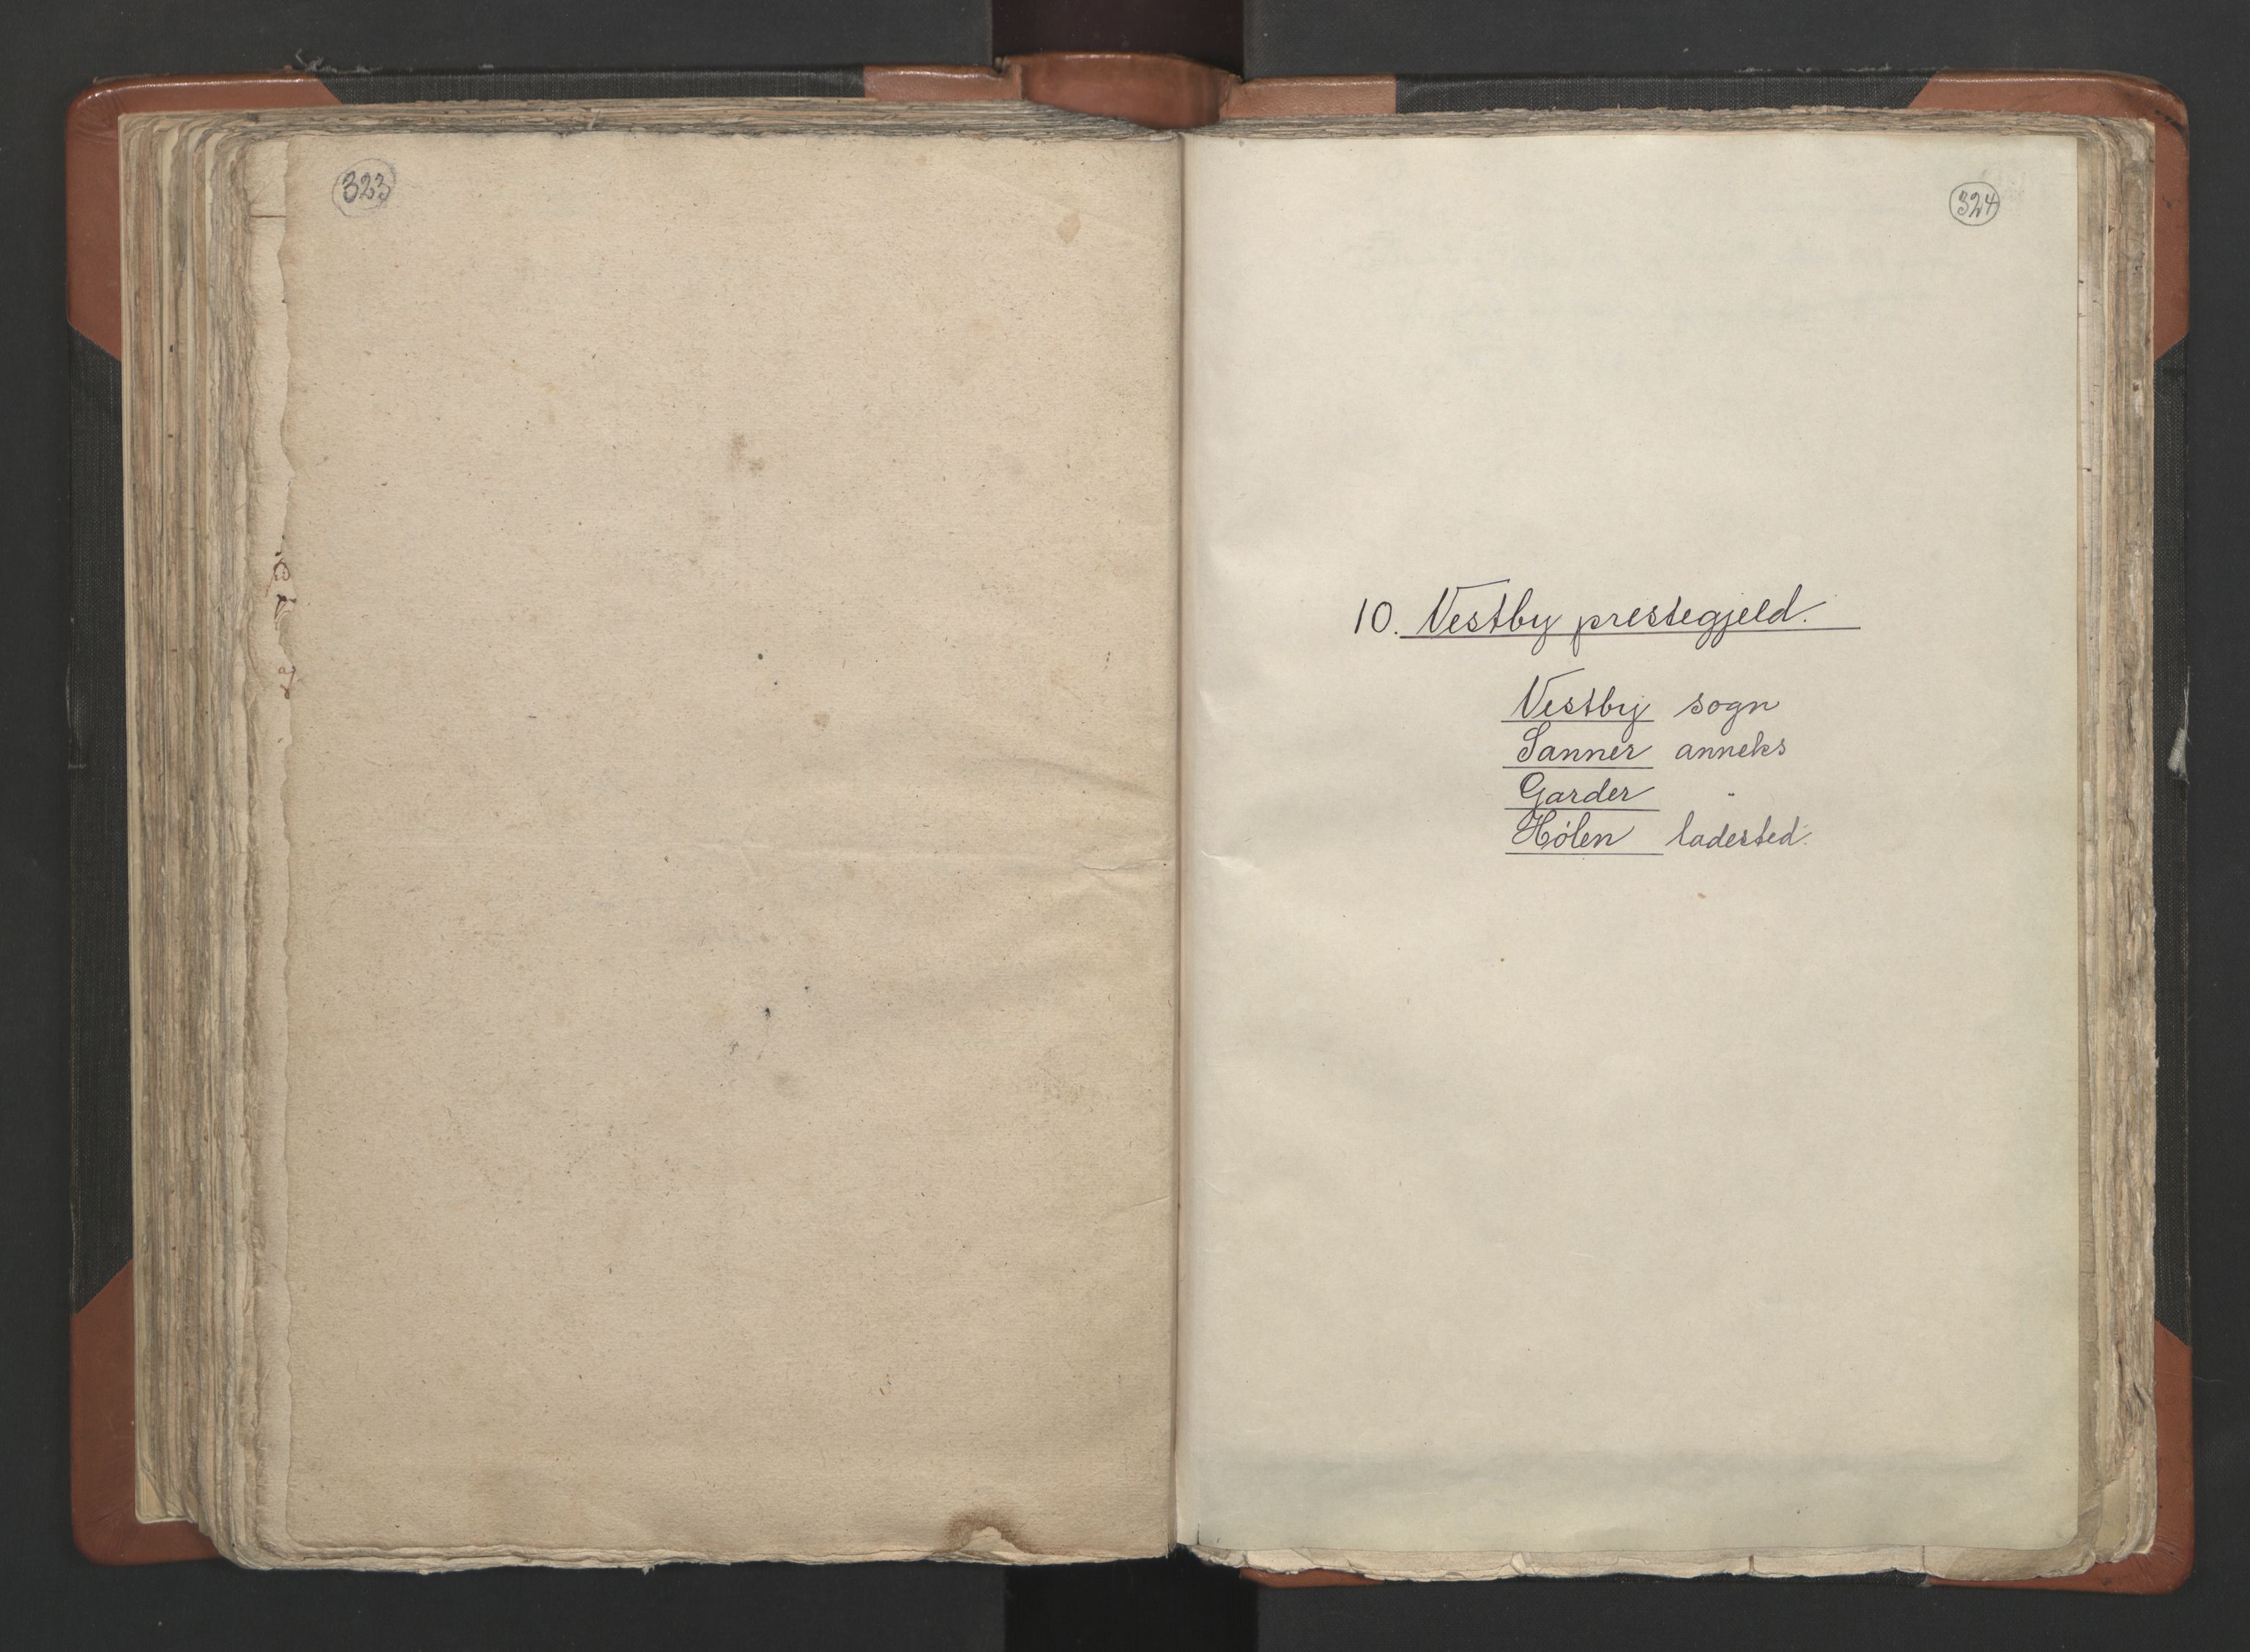 323
324
10. Vestby prestegjeld.
Vestby sogn
Sanner anneks
Garder "
Hølen ladested.